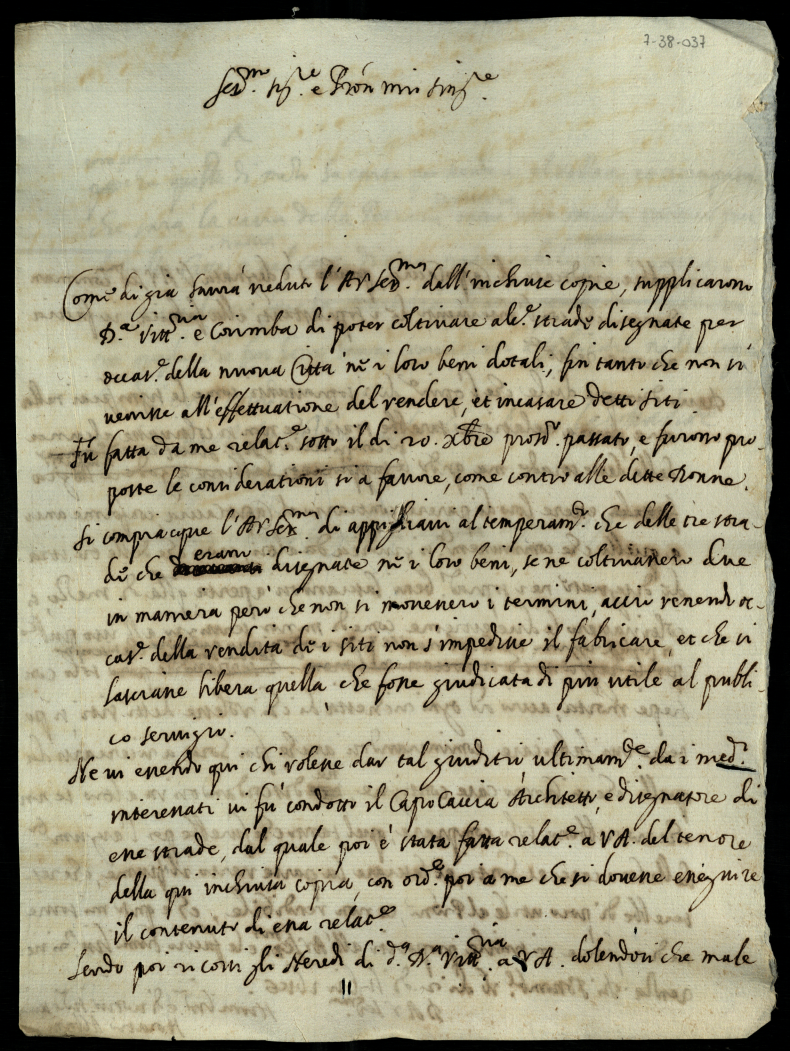 7-38-037
Ser.mo Sig.re e Pròn mio Sing.re
Come di già haurà veduto l'A V Ser.ma dall'inchiuse copie, supplicarono
D.a Vitt.ria e Corimba di poter coltivare alc.e strade disegnate per
occas.e della nuova Città nè i loro beni dotali, sin tanto che non si
venisse all'effettuatione del vendere, et incasare detti siti
Fù fatta da me relat.e sotto il dì 20. Xbre pross.o passato, e furono pro-
poste le considerationi sì a favore, come contro alle dette Donne.
Si compiacque l'A V Ser.ma di appigliarsi al temperam.to che delle tre stra-
dè che erano disegnate nè i loro beni, se ne coltivassero due
in maniera però che non si movessero i termini, acciò venendo oc-
cas.e della vendita dè i siti non s'impedisse il fabricare, et che si
lasciasse libera quella, che fosse giudicata di più utile al publi-
co servigio.
Ne vi essendo qui chi volesse dar tal giuditio ultimam.te da i med.i
interessati vi fù condotto il Capo Caccia Architetto, e disegnatore di
esse strade, dal quale poi è stata fatta relat.e a V A. del tenore
della qui inchiusa copia, con ord.e poi a me che si dovesse eseguire
il contenuto di essa relat.e
Sendo poi ricorsi gli Heredi di d.a D.a Vitt.ria a V A. dolendosi che male